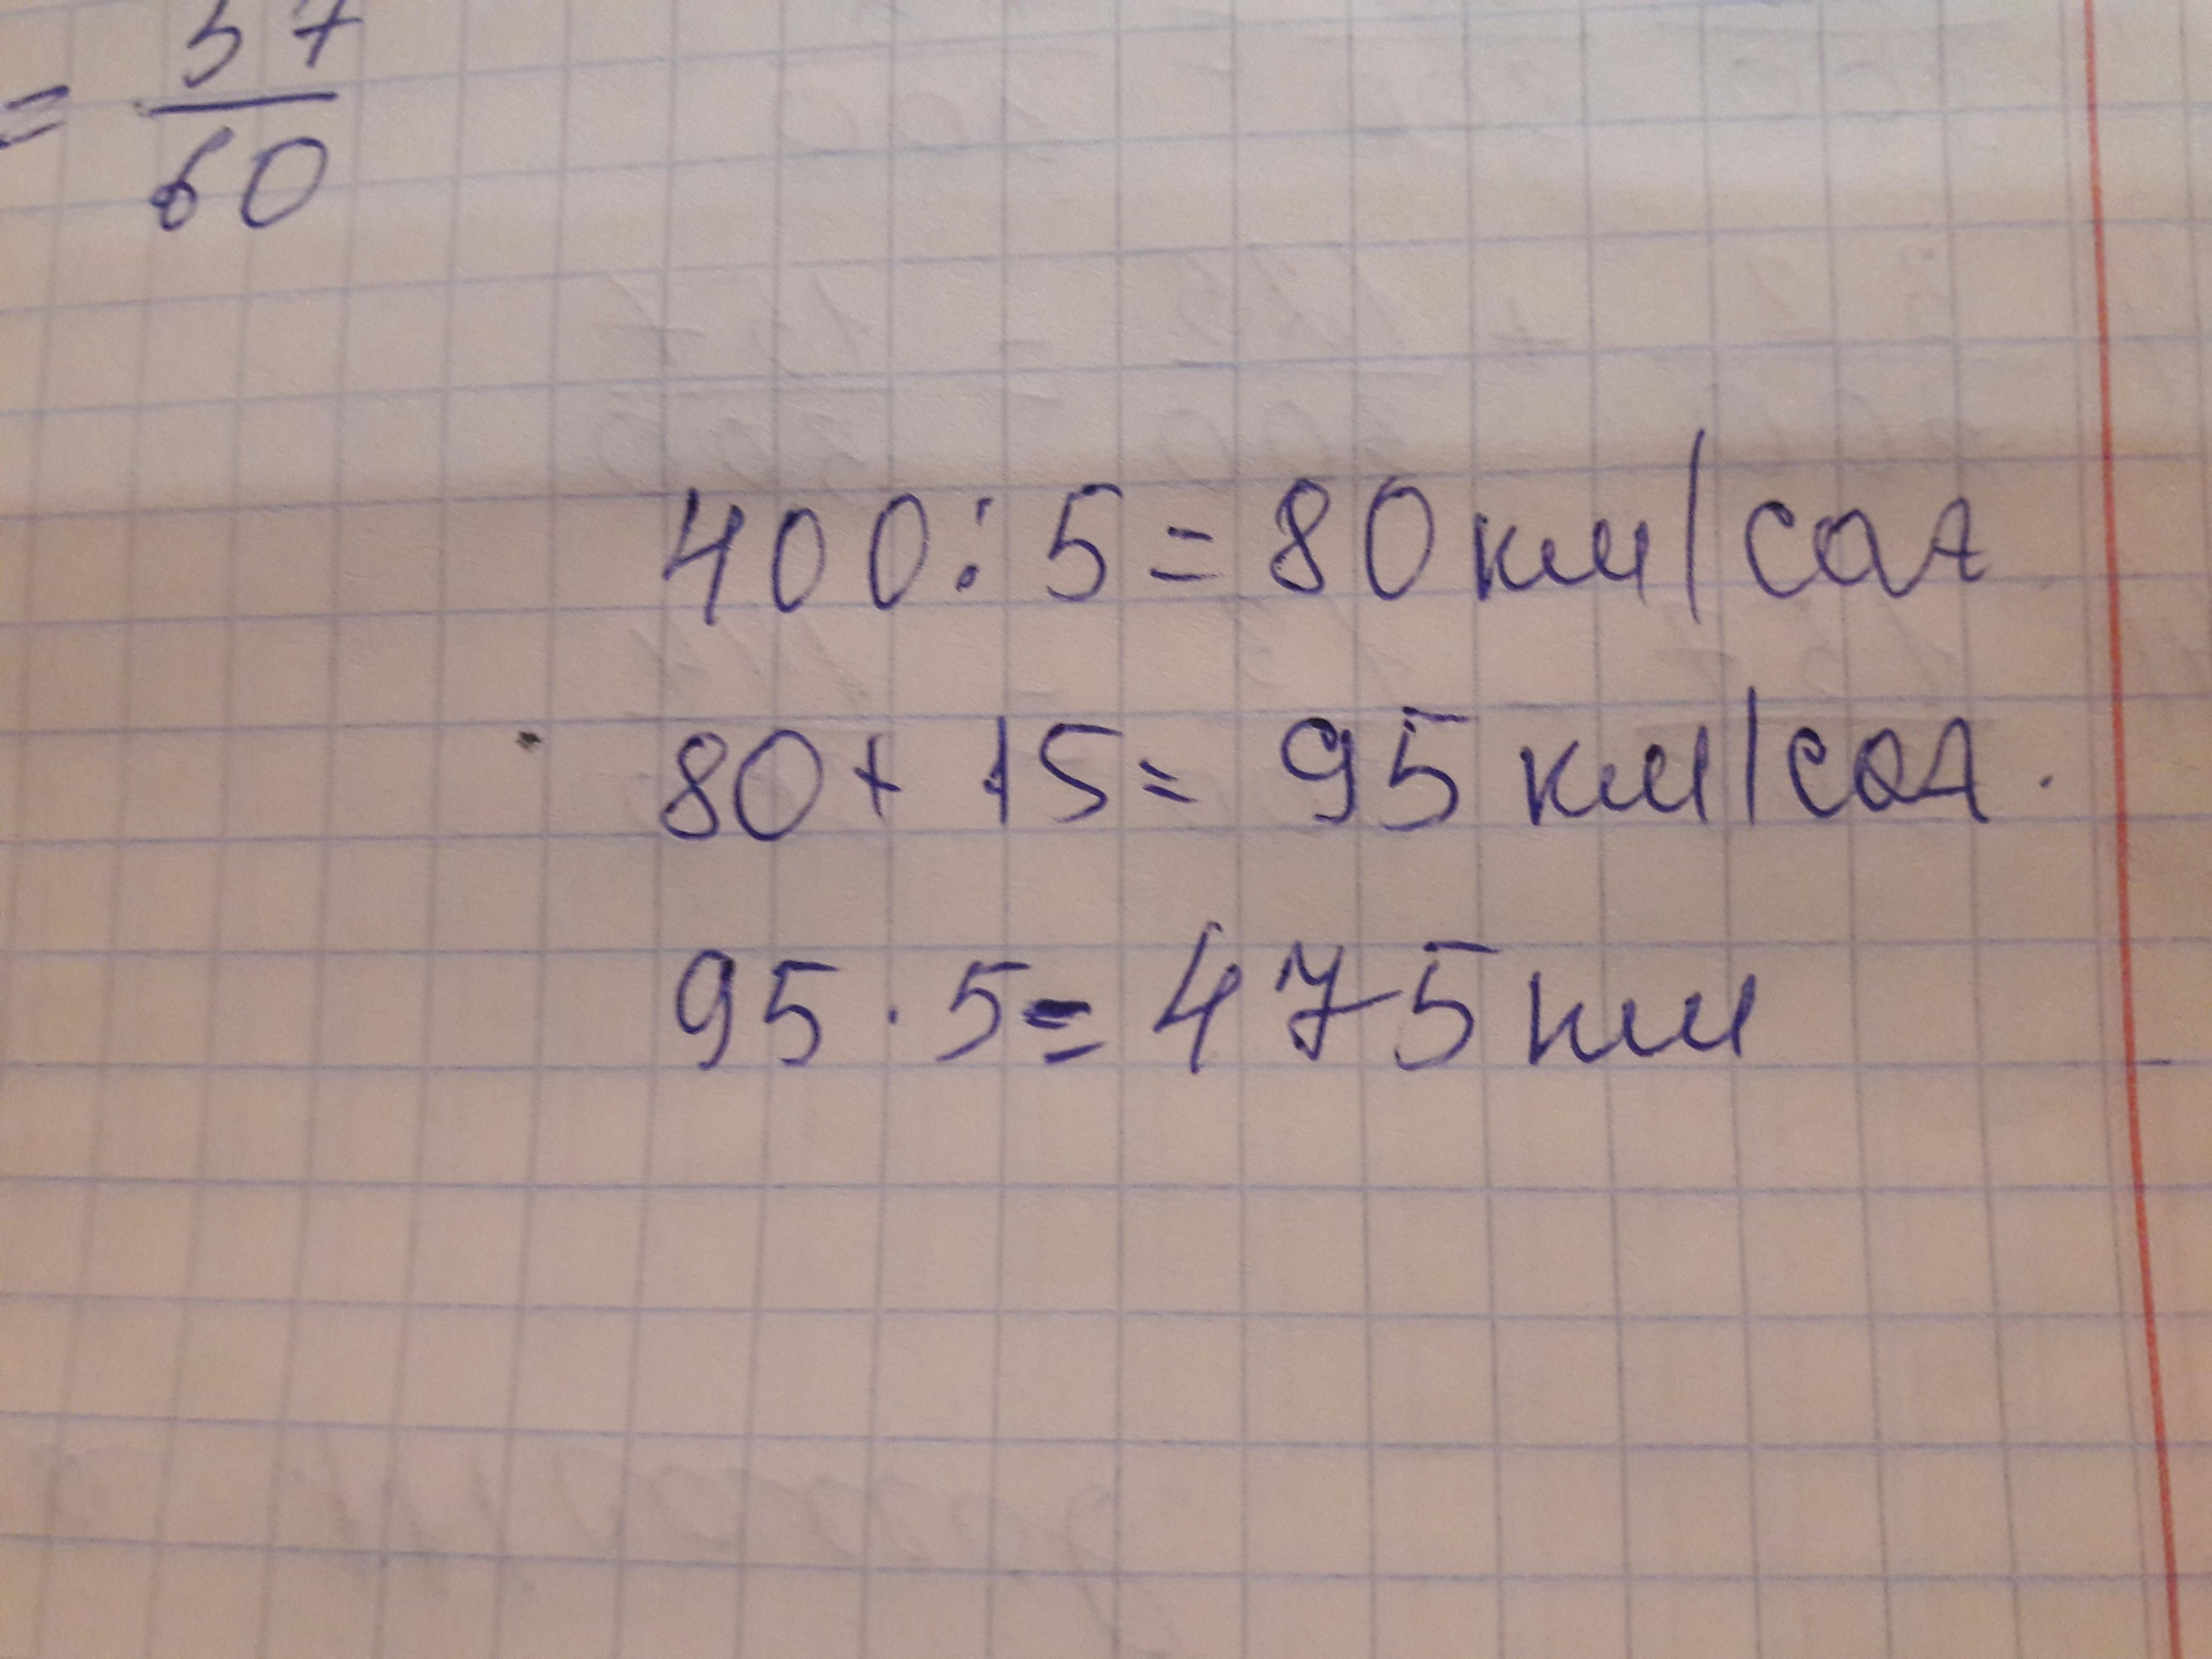 = 57/60
400 : 5 = 80 км/соа
80 + 15 = 95 км/соа.
95 · 5 = 475 км